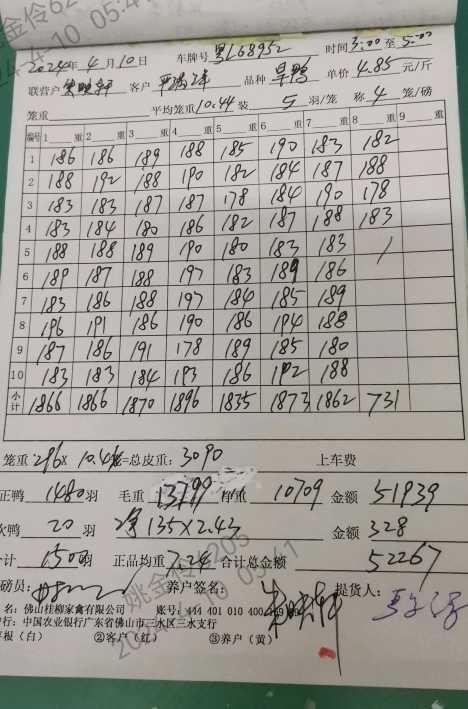 2024年 4月 10日 车牌号 粤L68952 时间 3:00 至 5:00
联营户 客户 品种 旱鸭 单价 4.85 元/斤
笼重 平均笼重 10.44 装 5 羽/笼 称 4 笼/磅
编号 1 重 2 重 3 重 4 重 5 重 6 重 7 重 8 重 9 重
1 186 186 189 188 185 190 183 182
2 188 192 188 190 182 184 187 188
3 183 183 187 187 178 184 190 178
4 183 184 180 186 182 187 188 183
5 188 188 189 190 180 183 183 /
6 189 187 188 197 183 189 186
7 183 186 188 197 184 185 189
8 196 191 186 190 186 194 188
9 187 186 191 178 189 185 180
10 183 183 184 193 186 192 188
小计 1866 1866 1870 1896 1835 1873 1862 731
笼重 296 × 10.44 =总皮重: 3090 上车费
正鸭 1480 羽 毛重 13799 净重 10709 金额 51939
次鸭 20 羽 净 135×2.43 金额 328
合计 1500 羽 正品均重 7.24 合计总金额 52267
磅员: 养户签名: 提货人:
名: 佛山桂柳家禽有限公司 账号: 444 401 010 400
行: 中国农业银行广东省佛山市三水区三水支行
存根（白） ②客户（红） ③养户（黄）
姚金伶6205
2024-04-10 05:41